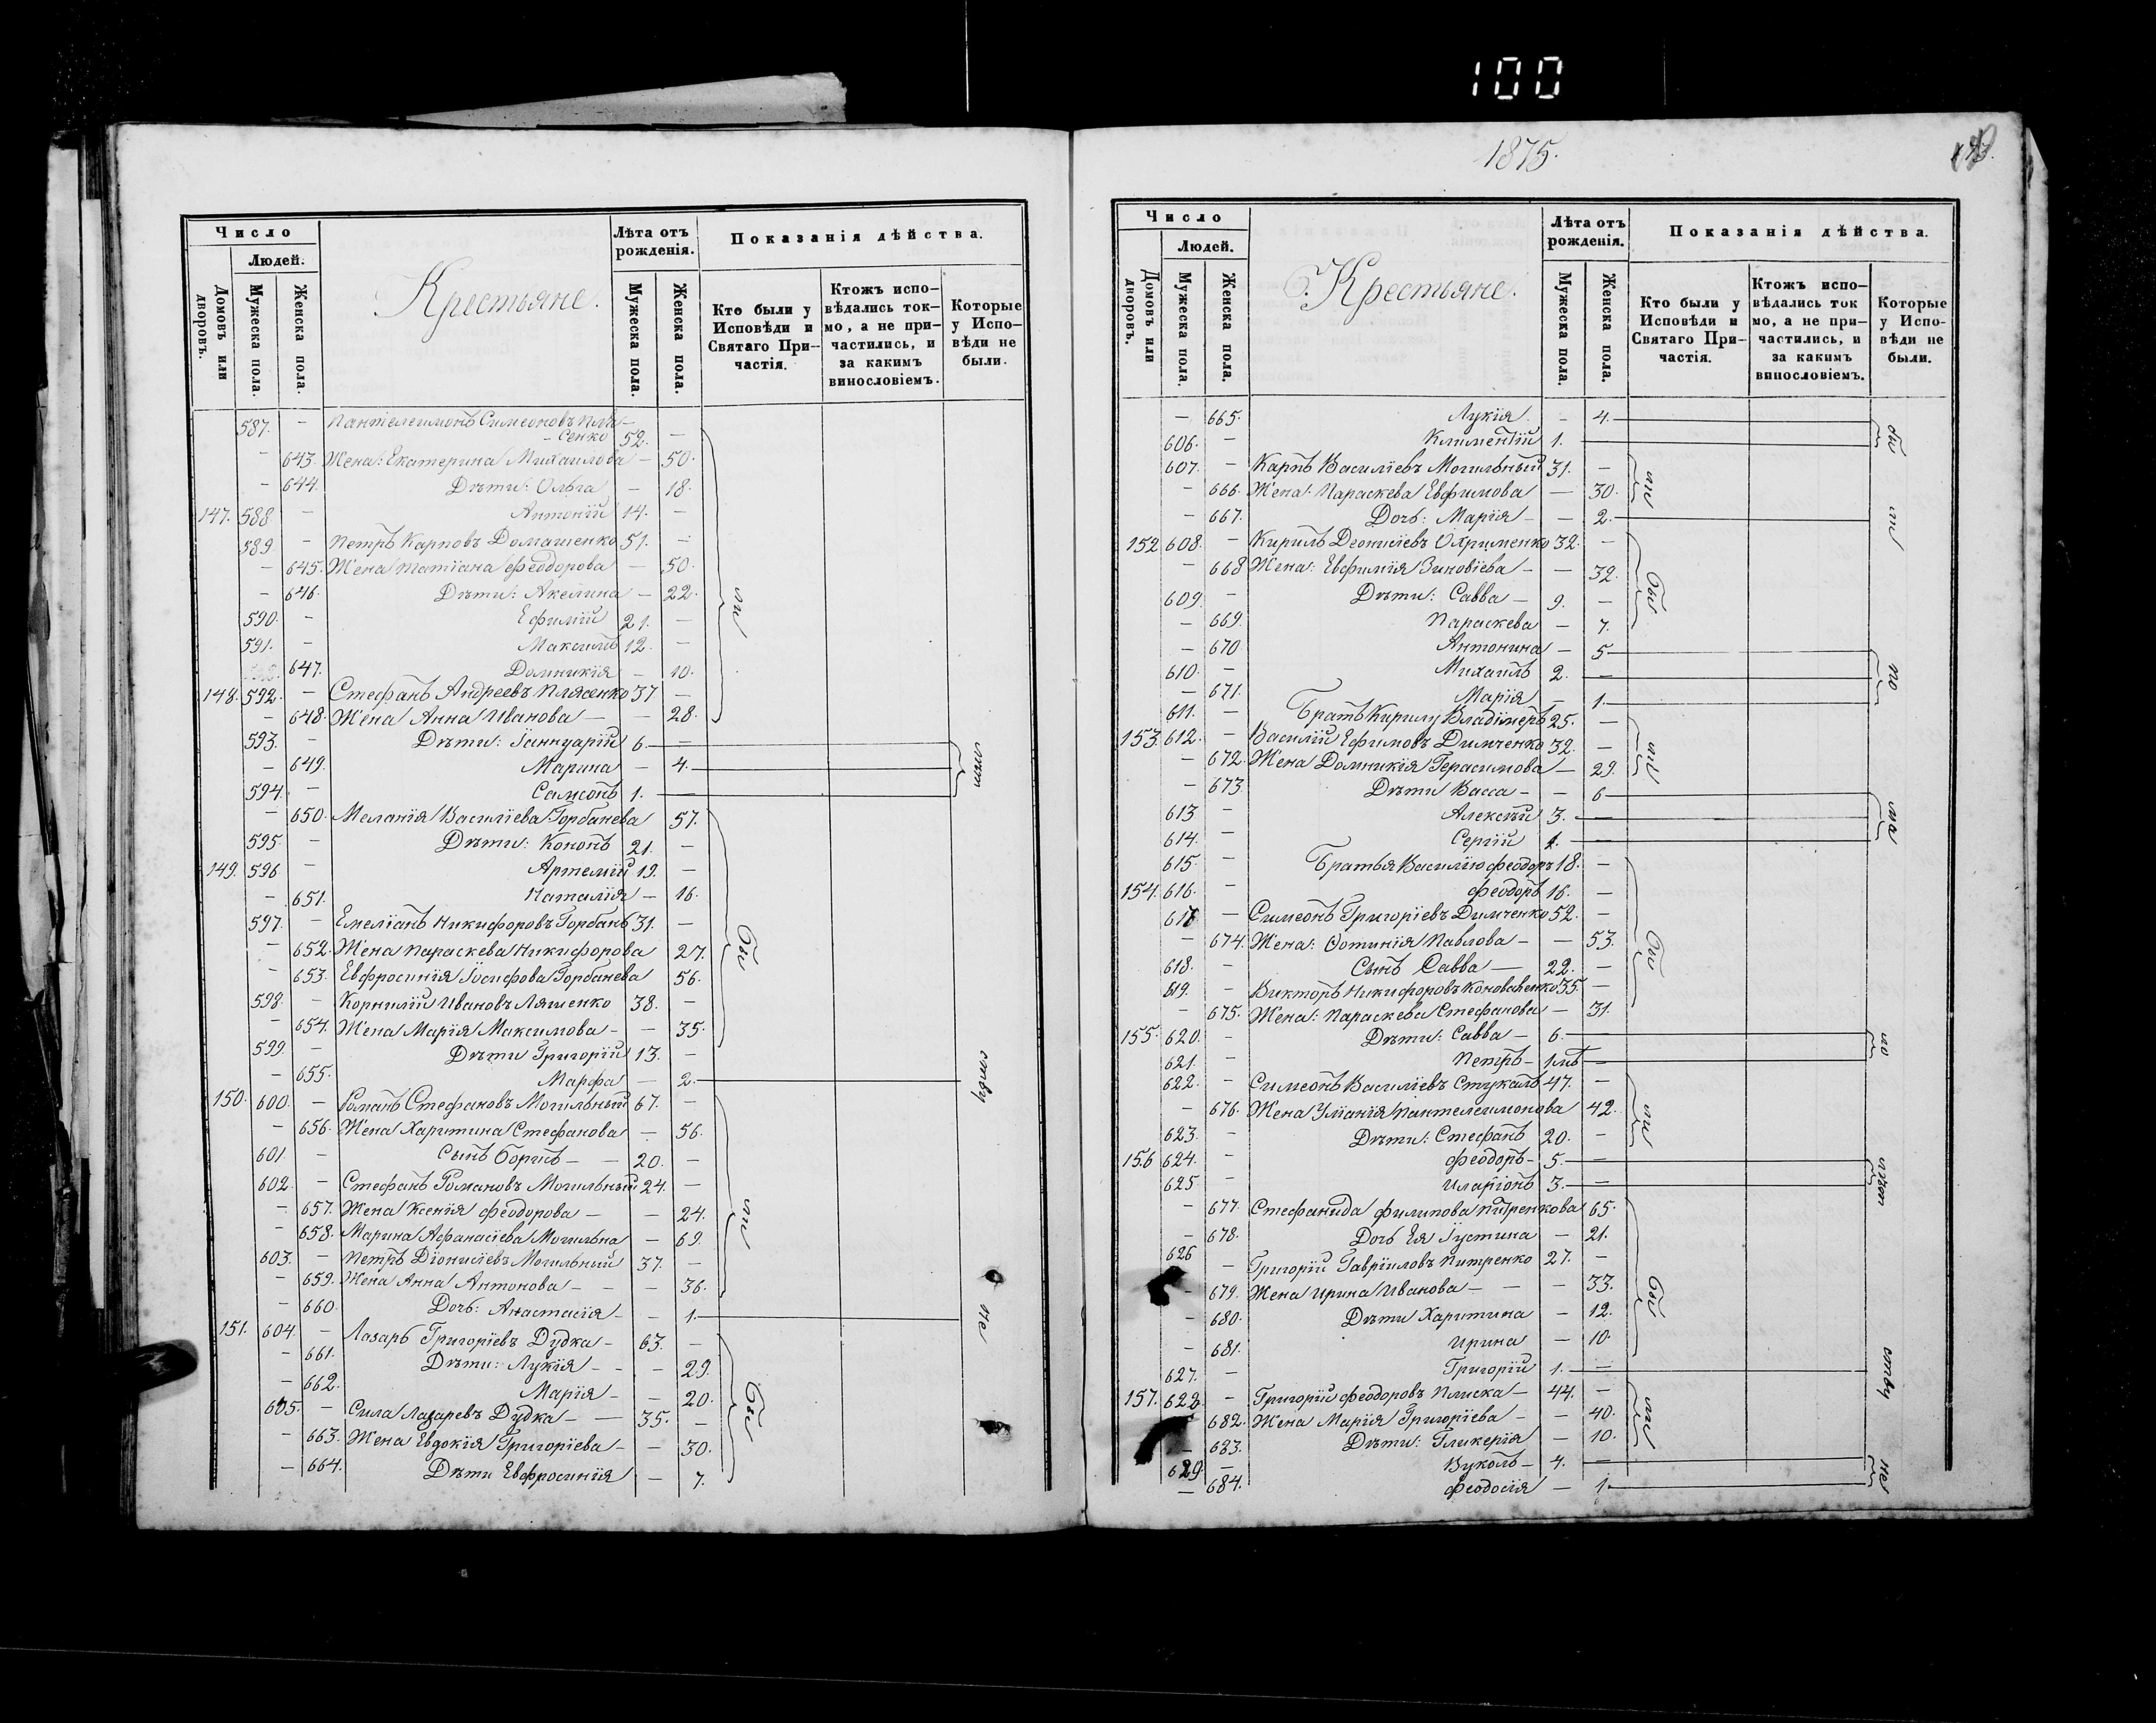 100
Число
Людей.
Домовъ или дворовъ.
Мужеска пола.
Женска пола.
Крестьяне.
Лѣта отъ рожденія.
Мужеска пола.
Женска пола.
Показанія дѣйства.
Кто были у Исповѣди и Святаго При-частія.
Ктожъ испо-вѣдались ток-мо, а не при-частились, и за какимъ винословіемъ.
Которые у Испо-вѣди не были.
587. – Пантелеимонъ Симеоновъ Пля-
-сенко 52. –
– 643. Жена: Екатерина Михаилова – 50.
– 644. Дѣти: Ольга – 18.
147. 588 – Антоній 14. –
589. – Петръ Карповъ Домашенко 51. –
– 645. Жена Татіана Феодорова – 50.
– 646. Дѣти: Акелина – 22.
590. – Ефимій 21. –
591. – Максимъ 12. –
647. Домникія – 10.
148. 592. – Стефанъ Андреевъ Плясенко 37 –
– 648. Жена Анна Иванова – – 28.
593. – Дѣти: Іаннуарій 6. –
– 649. Марина – 4.
594. – Самсонъ 1. –
– 650. Меланія Василіева Горбанева 57.
595. – Дѣти: Кононъ 21. –
149. 596 – Артемій 19. –
– 651. Наталія – 16.
597. – Емеліанъ Никифоровъ Горбанъ 31. –
– 652. Жена Параскева Никифорова 27.
– 653. Евфросинія Іосифова Горбанева 56.
598. – Корнилій Ивановъ Ляшенко 38. –
– 654. Жена Марія Максимова – – 35.
599. – Дѣти Григорій 13. –
– 655. Марфа – 2.
150. 600. – Романъ Стефановъ Могильный 67. –
– 656. Жена Харитина Стефанова – 56.
601. – Сынъ Борисъ – – 20. –
602. – Стефанъ Романовъ Могильный 24. –
– 657. Жена Ксенія Феодорова – – 24.
– 658. Марина Афанасіева Могильна – 69.
603. – Петръ Діонисіевъ Могильный 37. –
– 659. Жена Анна Антонова – – 36.
– 660. Дочь: Анастасія – – 1.
151. 604. – Лазарь Григоріевъ Дудка – 63. –
– 661. Дѣти: Лукія – – 29.
– 662. Марія – – 20.
605. – Сила Лазаревъ Дудка – – 35. –
– 663. Жена Евдокія Григоріева – – 30.
– 664. Дѣти Евфросинія – 7.
1875.
Число
Людей.
Домовъ или дворовъ.
Мужеска пола.
Женска пола.
Крестьяне.
Лѣта отъ рожденія.
Мужеска пола.
Женска пола.
Показанія дѣйства.
Кто были у Исповѣди и Святаго При-частія.
Ктожъ испо-вѣдались ток мо, а не при-частились, и за какимъ винословіемъ.
Которые у Испо-вѣди не были.
– 665. Лукія – 4.
606. – Климентій 1.
607. – Карпъ Василіевъ Могильный 31. –
– 666. Жена: Параскева Евфимова – 30.
– 667. Дочь: Марія – – 2.
152 608. – Кирилъ Леонтіевъ Охрименко 32. –
– 668 Жена: Евфимія Зиновіева – – 32.
609. – Дѣти: Савва – 9. –
– 669. Параскева – 7.
– 670 Антонина – 5
610. – Михаилъ 2. –
– 671. Марія – 1.
611. – Братъ Кирилу Владіміръ 25. –
153. 612. – Василій Ефимовъ Димченко 32. –
– 672. Жена Домникія Герасимова – 29.
– 673 Дѣти Васса – – 6
613 – Алексѣй 3. –
614. – Сергій 1. –
615. – Братья Василію Феодоръ 18. –
154. 616. – Феодоръ 16. –
617 – Симеонъ Григоріевъ Димченко 52. –
– 674. Жена: Фотинія Павлова – – 53.
618. – Сынъ Савва – 22. –
619. – Викторъ Никифоровъ Коноваленко 35. –
– 675. Жена: Параскева Стефанова – 31.
155. 620. – Дѣти: Савва – 6.
621. – Петръ – 1 мѣ –
622. – Симеонъ Василіевъ Стукалъ 47. –
– 676. Жена Уліанія Пантелеимонова 42.
623. – Дѣти: Стефанъ 20. –
156 624. – Феодоръ – 5. –
625 – Иларіонъ 3. –
– 677. Стефанида Филипова Питренкова 65.
– 678. Дочь Ея Іустина – 21.
626 – Григорій Гавріиловъ Питренко 27. –
– 679. Жена Ирина Иванова – – 33.
– 680. Дѣти Харитина – 12.
– 681. Ирина – 10.
627. – Григорій 1. –
157. 628 – Григорій Феодоровъ Плиска – 44. –
682. Жена Марія Григоріева – – 40.
– 683. Дѣти: Гликерія – 10.
629 – Вуколъ – 4. –
– 684. Феодосія – 1.